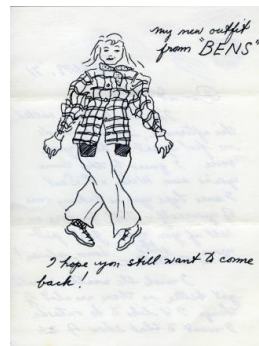 my new outfit
from "BENS"
I hope you still want to come
back!